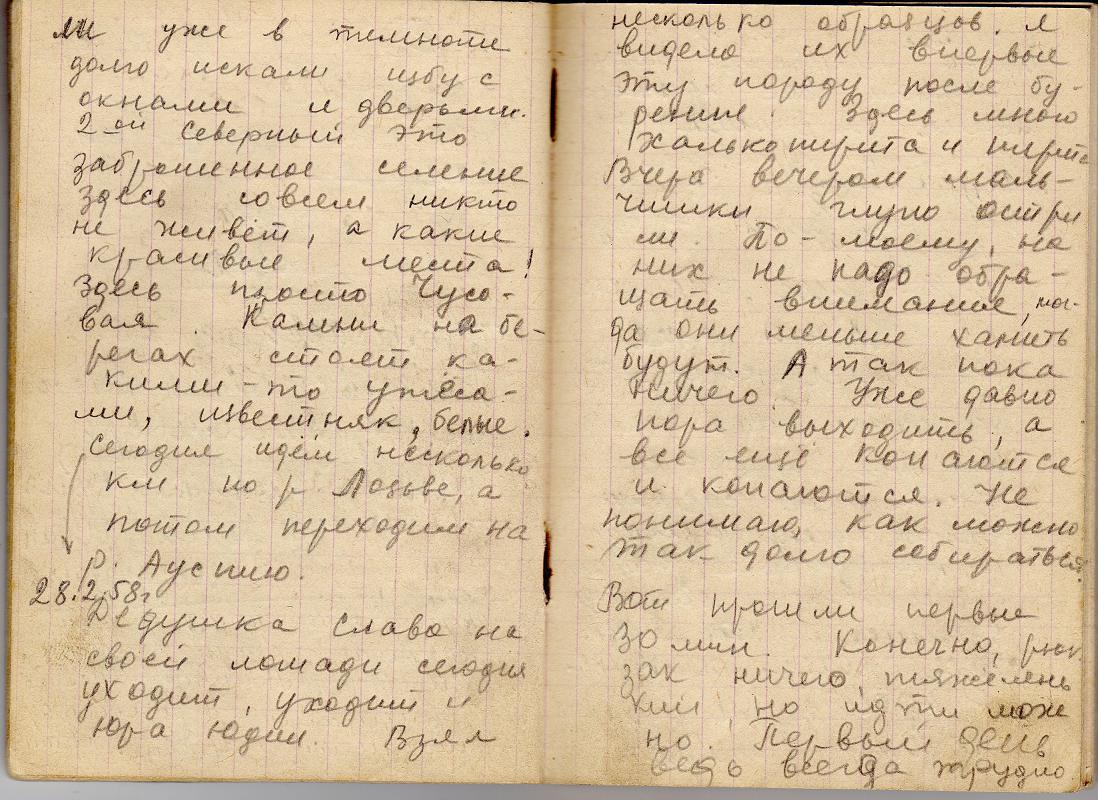 ли уже в темноте
долго искали избу с
окнами и дверьми.
2-ой Северный это
заброшенное селение
здесь совсем никто
не живёт, а какие
красивые места!
Здесь просто Чусо-
вая. Камни на бе-
регах стоят ка-
кими-то утёса-
ми, известняк, белые.
Сегодня идём несколько
км по р Лозьве, а
потом переходим на
р. Ауспию.
28.2.58г
Дедушка Слава на
своей лошади сегодня
уходит, уходит и
Юра Юдин. Взял
несколько образцов. Я
видела их впервые
эту породу после бу-
рения. Здесь много
Халькопирита и пирита
Вчера вечером маль-
чишки глупо остри
ли. По-моему, на
них не надо обра-
щать внимание, тог-
да они меньше хамить
будут. А так пока
ничего. Уже давно
пора выходить, а
все ещё копаются
и копаются. Не
понимаю, как можно
так долго собираться.
Вот прошли первые
30 мин. Конечно, рюк
зак ничего, тяжелень
кий, но идти мож
но. Первый день
ведь всегда трудно